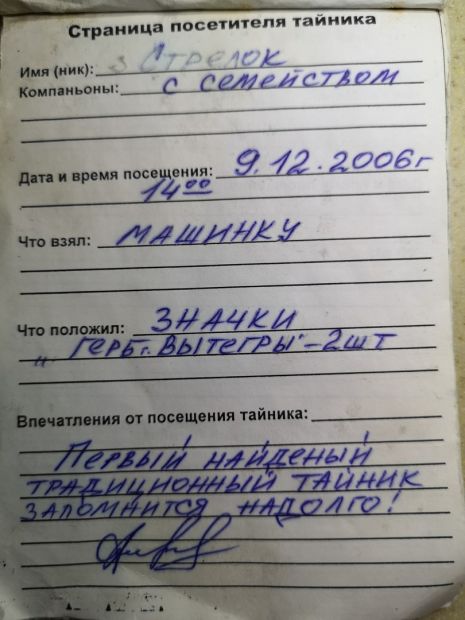 Страница посетителя тайника
Имя (ник): СТРЕЛОК
Компаньоны: С СЕМЕЙСТВОМ
Дата и время посещения: 9.12.2006г
14⁰⁰
Что взял: МАШИНКУ
Что положил: ЗНАЧКИ
„ГЕРБ г. ВЫТЕГРЫ" – 2ШТ
Впечатления от посещения тайника:
ПЕРВЫЙ НАЙДЕНЫЙ
ТРАДИЦИОННЫЙ ТАЙНИК
ЗАПОМНИТСЯ НАДОЛГО!